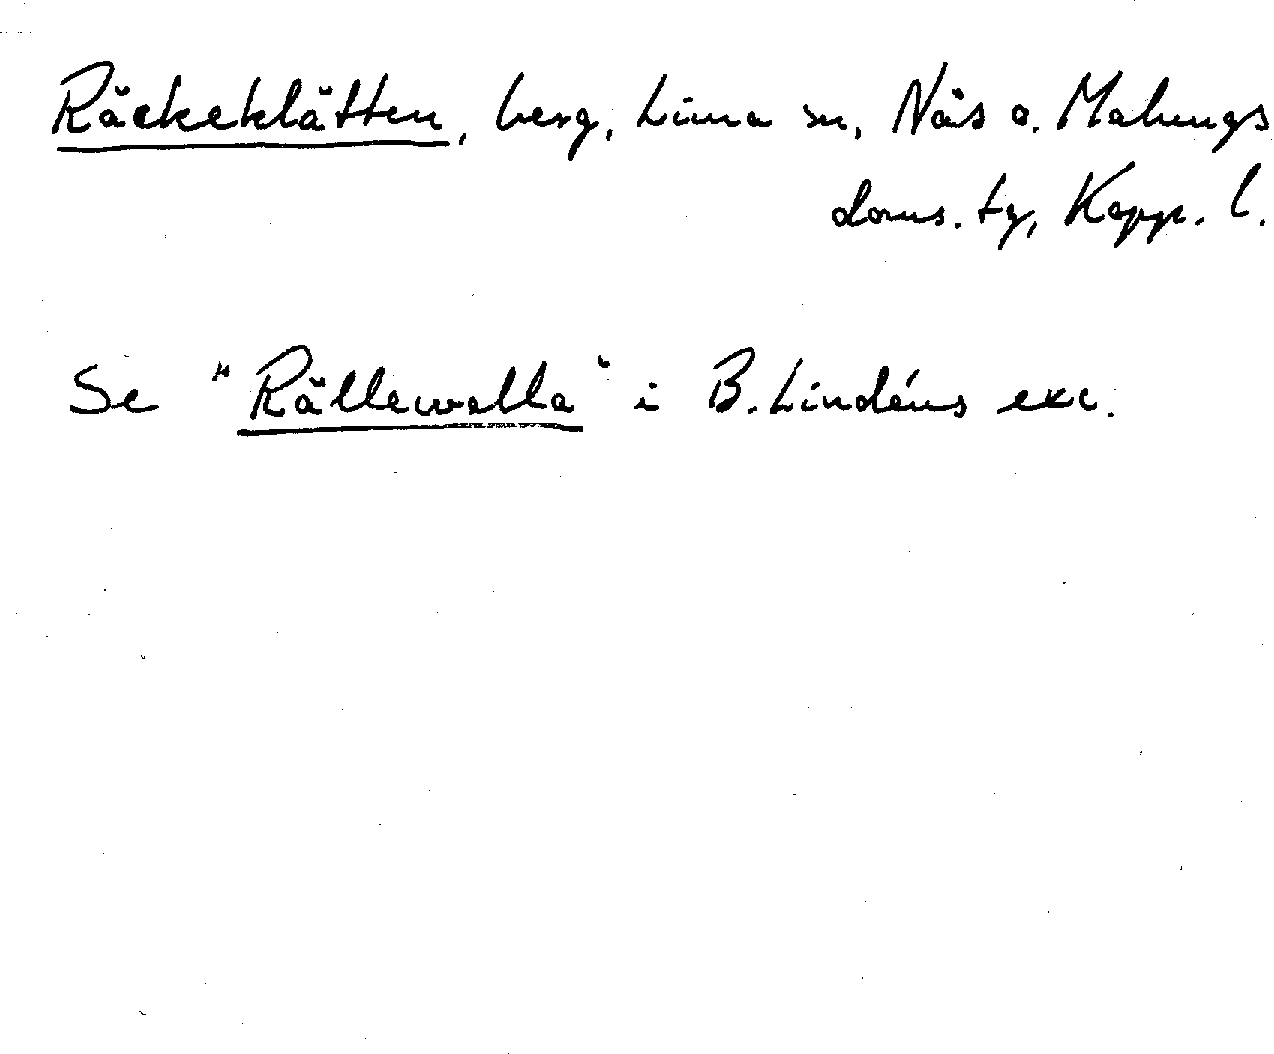 Räckeklätten, berg, Lima sn, Nås o. Malungs
doms. tg, Kopp. l.
Se "Rällewalla" i B. Lindéns exc.